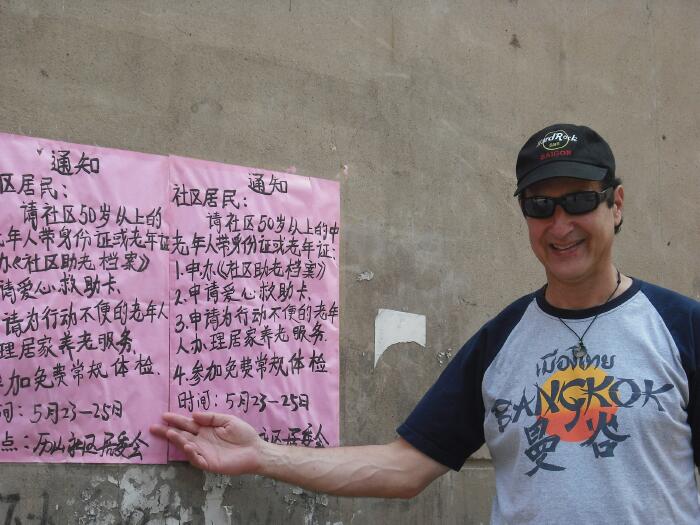 通知
区居民:
请社区50岁以上的
老年人带身份证或老年证
办《社区助老档案》
请爱心救助卡.
请为行动不便的老年人
理居家养老服务.
参加免费常规体检.
间: 5月23—25日
点: 历山社区居委会
通知
社区居民:
请社区50岁以上的中
老年人带身份证或老年证:
1.申办《社区助老档案》
2.申请爱心救助卡.
3.申请为行动不便的老年
人办理居家养老服务.
4.参加免费常规体检
时间: 5月23—25日
社区居委会
Hard Rock
CAFE
SAIGON
เมืองไทย
BANGKOK
曼谷